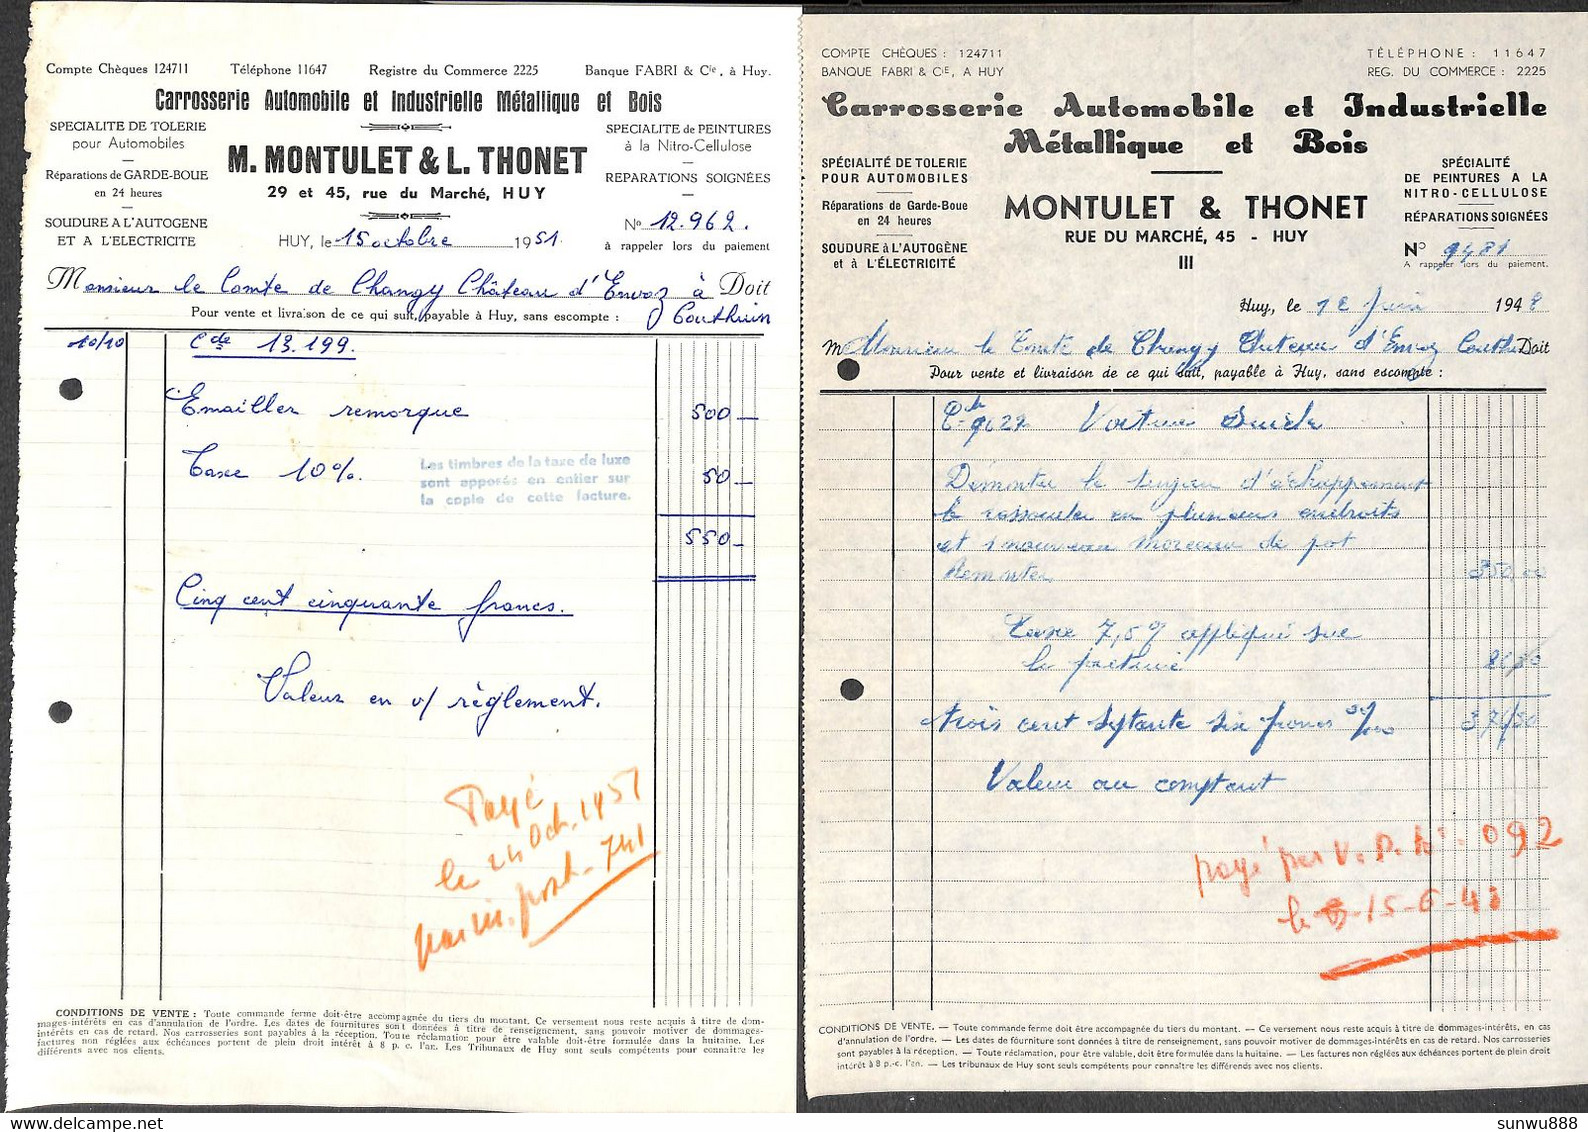 Compte Chèques 124711 Téléphone 11647 Registre du Commerce 2225 Banque FABRI & Cie, à Huy.
Carrosserie Automobile et Industrielle Métallique et Bois
SPECIALITE DE TOLERIE
pour Automobiles
Réparations de GARDE-BOUE
en 24 heures
SOUDURE A L'AUTOGENE
ET A L'ELECTRICITE
M. MONTULET & L. THONET
29 et 45, rue du Marché, HUY
HUY, le 15 octobre 1951.
SPECIALITE de PEINTURES
à la Nitro-Cellulose
REPARATIONS SOIGNÉES
No 12.962.
à rappeler lors du paiement
Monsieur le Comte de Changy Château d'Envoz à Doit
Couthuin
Pour vente et livraison de ce qui suit, payable à Huy, sans escompte :
10/10 Cde 13.199.
Emailler remorque 500 —
Taxe 10%. 50 —
Les timbres de la taxe de luxe
sont apposés en entier sur
la copie de cette facture.
550 —
Cinq cent cinquante francs.
Valeur en v/ règlement.
Payé
le 24 Oct. 1951
par m. post - 741
CONDITIONS DE VENTE : Toute commande ferme doit-être accompagnée du tiers du montant. Ce versement nous reste acquis à titre de dom-
mages-intérêts en cas d'annulation de l'ordre. Les dates de fournitures sont données à titre de renseignement, sans pouvoir motiver de dommages-
intérêts en cas de retard. Nos carrosseries sont payables à la réception. Toute réclamation pour être valable doit-être formulée dans la huitaine. Les
factures non réglées aux échéances portent de plein droit intérêt à 8 p. c. l'an. Les Tribunaux de Huy sont seuls compétents pour connaître les
différents avec nos clients.
COMPTE CHÈQUES : 124711
BANQUE FABRI & CIE, A HUY
TÉLÉPHONE : 11647
REG. DU COMMERCE : 2225
Carrosserie Automobile et Industrielle
Métallique et Bois
SPÉCIALITÉ DE TOLERIE
POUR AUTOMOBILES
Réparations de Garde-Boue
en 24 heures
SOUDURE à L'AUTOGÈNE
et à L'ÉLECTRICITÉ
MONTULET & THONET
RUE DU MARCHÉ, 45 - HUY
III
SPÉCIALITÉ
DE PEINTURES A LA
NITRO-CELLULOSE
RÉPARATIONS SOIGNÉES
No 9481
A rappeler lors du paiement.
Huy, le 12 Juin 1948
M Monsieur le Comte de Changy Chateau d'Envoz Couthu Doit
Pour vente et livraison de ce qui suit, payable à Huy, sans escompte :
Cde 9027 Voiture Buick
Démonter le tuyau d'échappement
le ressouder en plusieurs endroits
et 1 nouveau morceau de pot
Remonter 350,00
Taxe 7,5% appliqué sur
la facture
Trois cent septante six francs
Valeur au comptant
payé par V. P. N° 092
le 15-6-48
CONDITIONS DE VENTE. — Toute commande ferme doit être accompagnée du tiers du montant. — Ce versement nous reste acquis à titre de dommages-intérêts, en cas
d'annulation de l'ordre. — Les dates de fournitures sont données à titre de renseignement, sans pouvoir motiver de dommages-intérêts en cas de retard. Nos carrosseries
sont payables à la réception. — Toute réclamation, pour être valable, doit être formulée dans la huitaine. — Les factures non réglées aux échéances portent de plein droit
intérêt à 8 p.-c. l'an. — Les tribunaux de Huy sont seuls compétents pour connaître les différends avec nos clients.
sunwu888